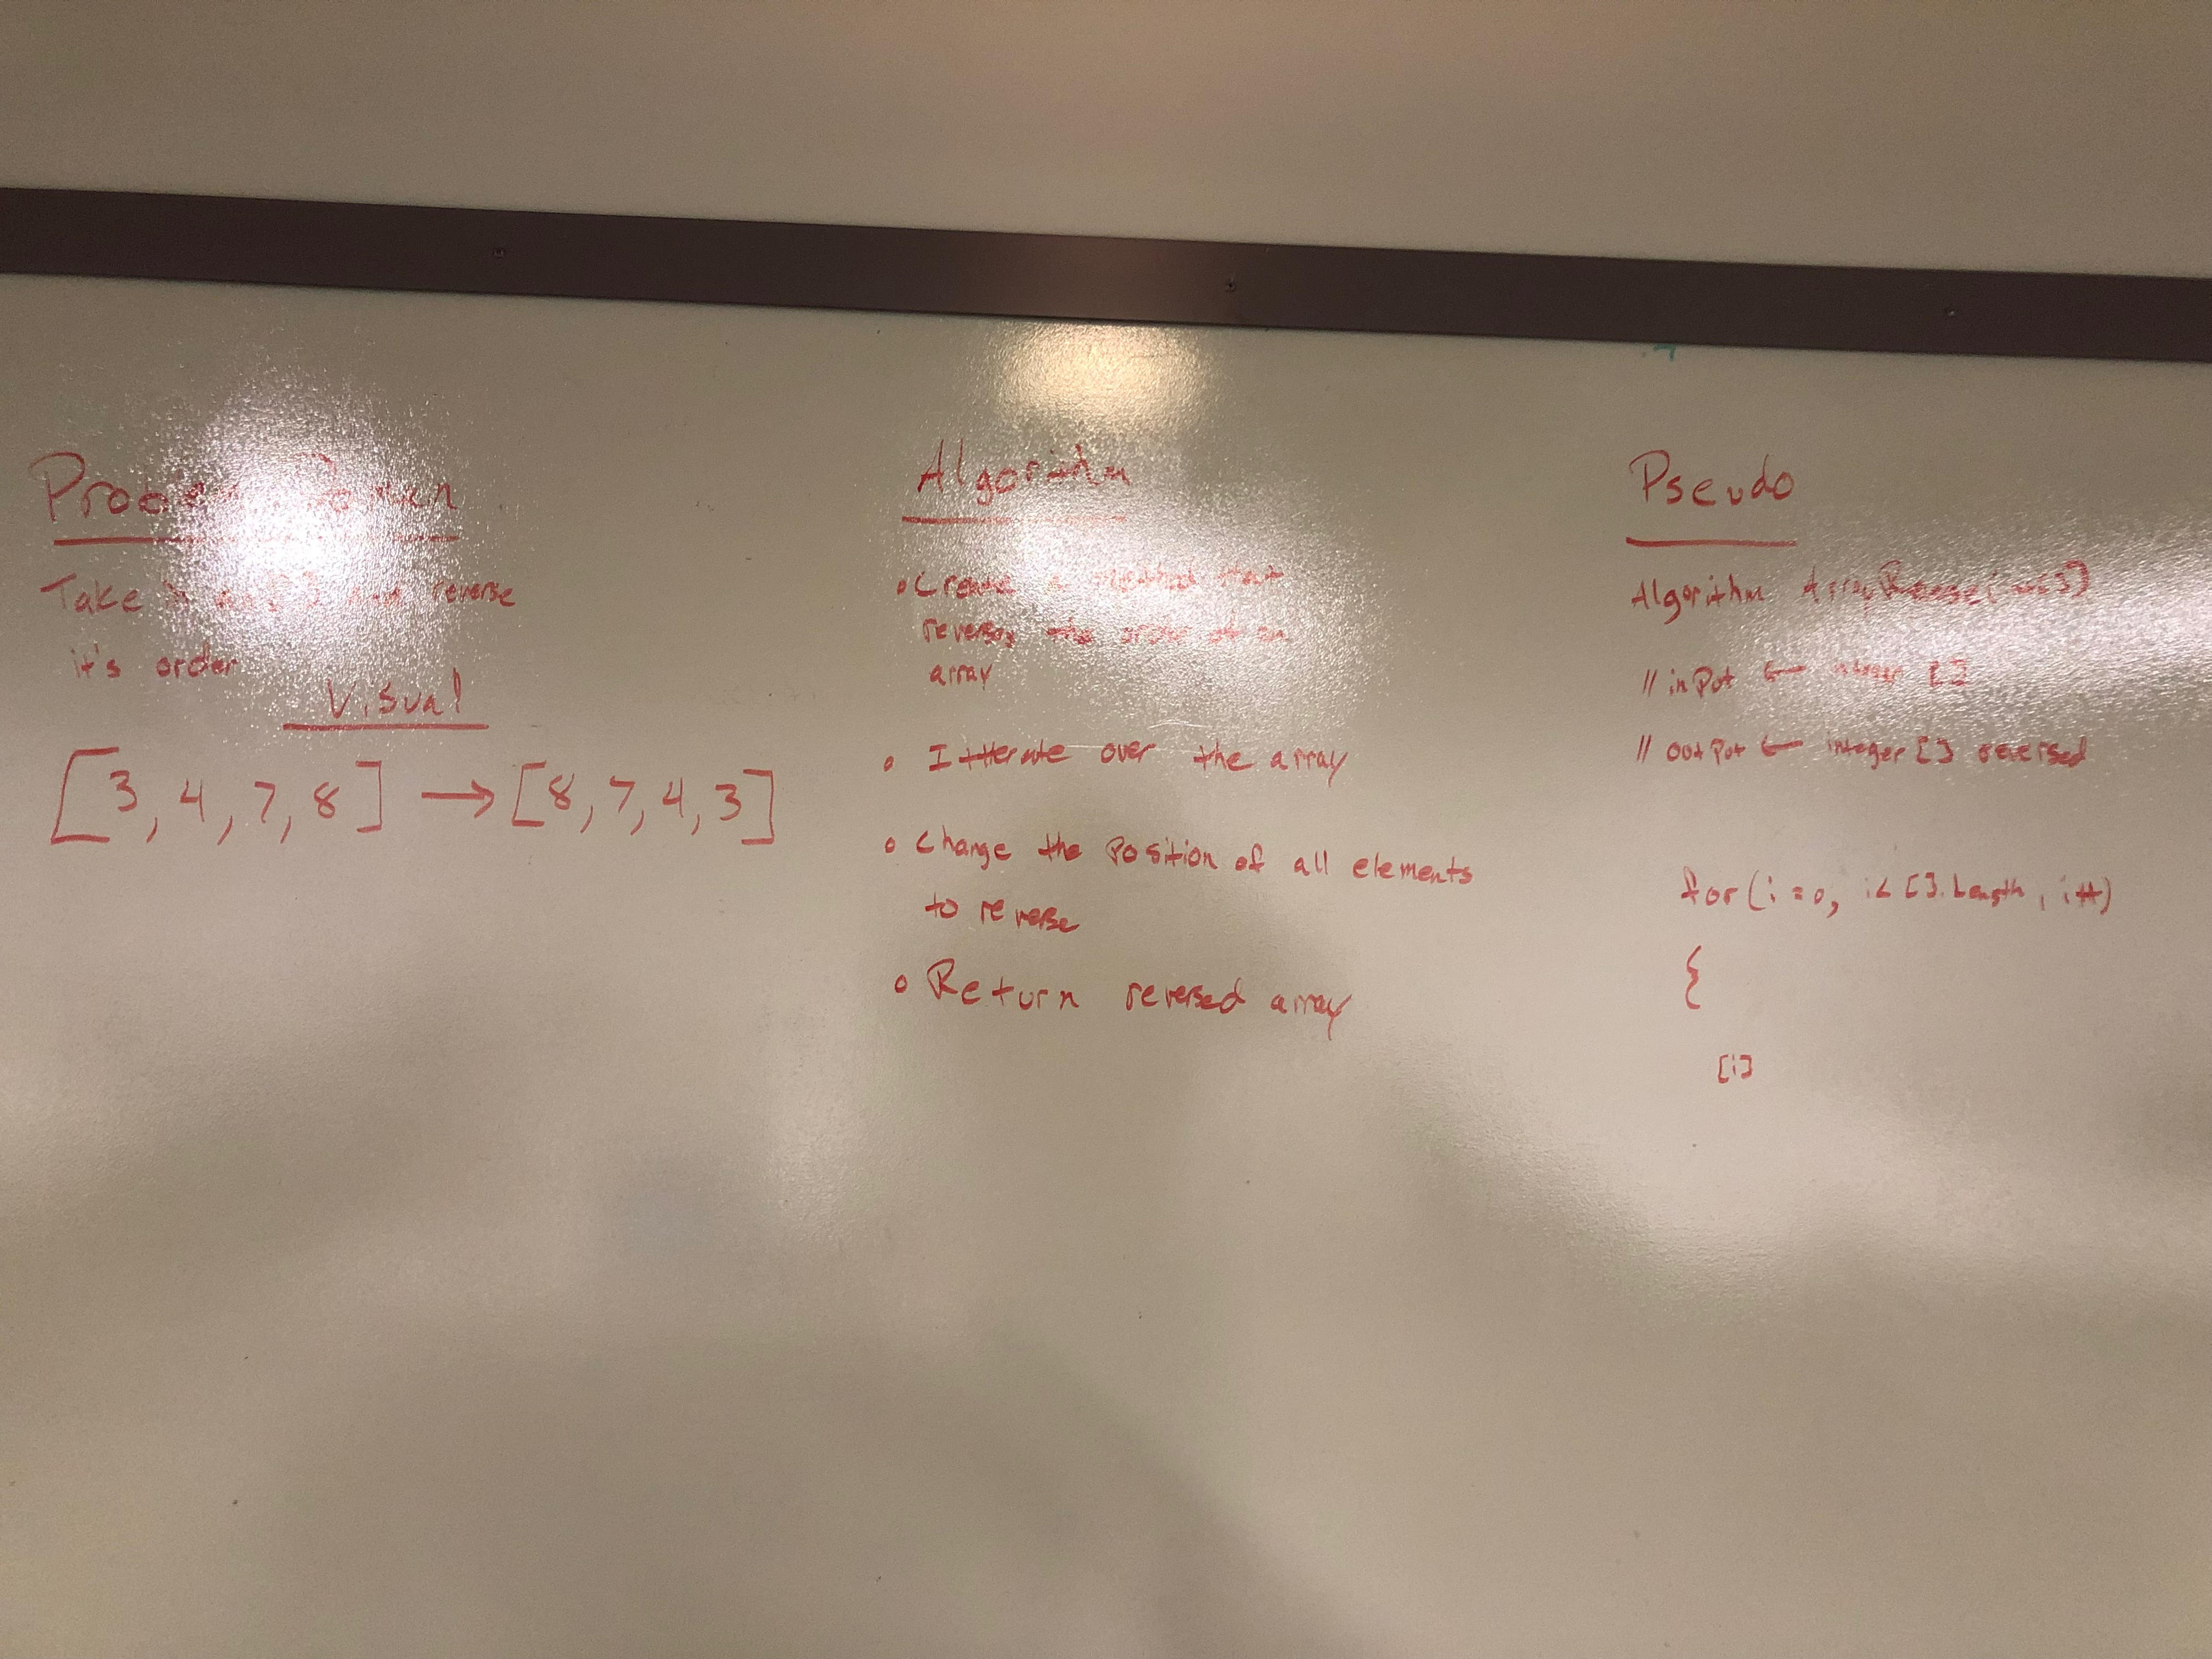 Problem Domain
Take an [] and reverse
it's order
Visual
[3, 4, 7, 8] → [8, 7, 4, 3]
Algorithm
• Create a method that
reverses the order of an
array
• Itterate over the array
• Change the position of all elements
to reverse
• Return reversed array
Pseudo
Algorithm
// inPut ← integer []
// outPut ← integer [] reversed
for (i = 0, i < [].Length, i++)
{
[i]